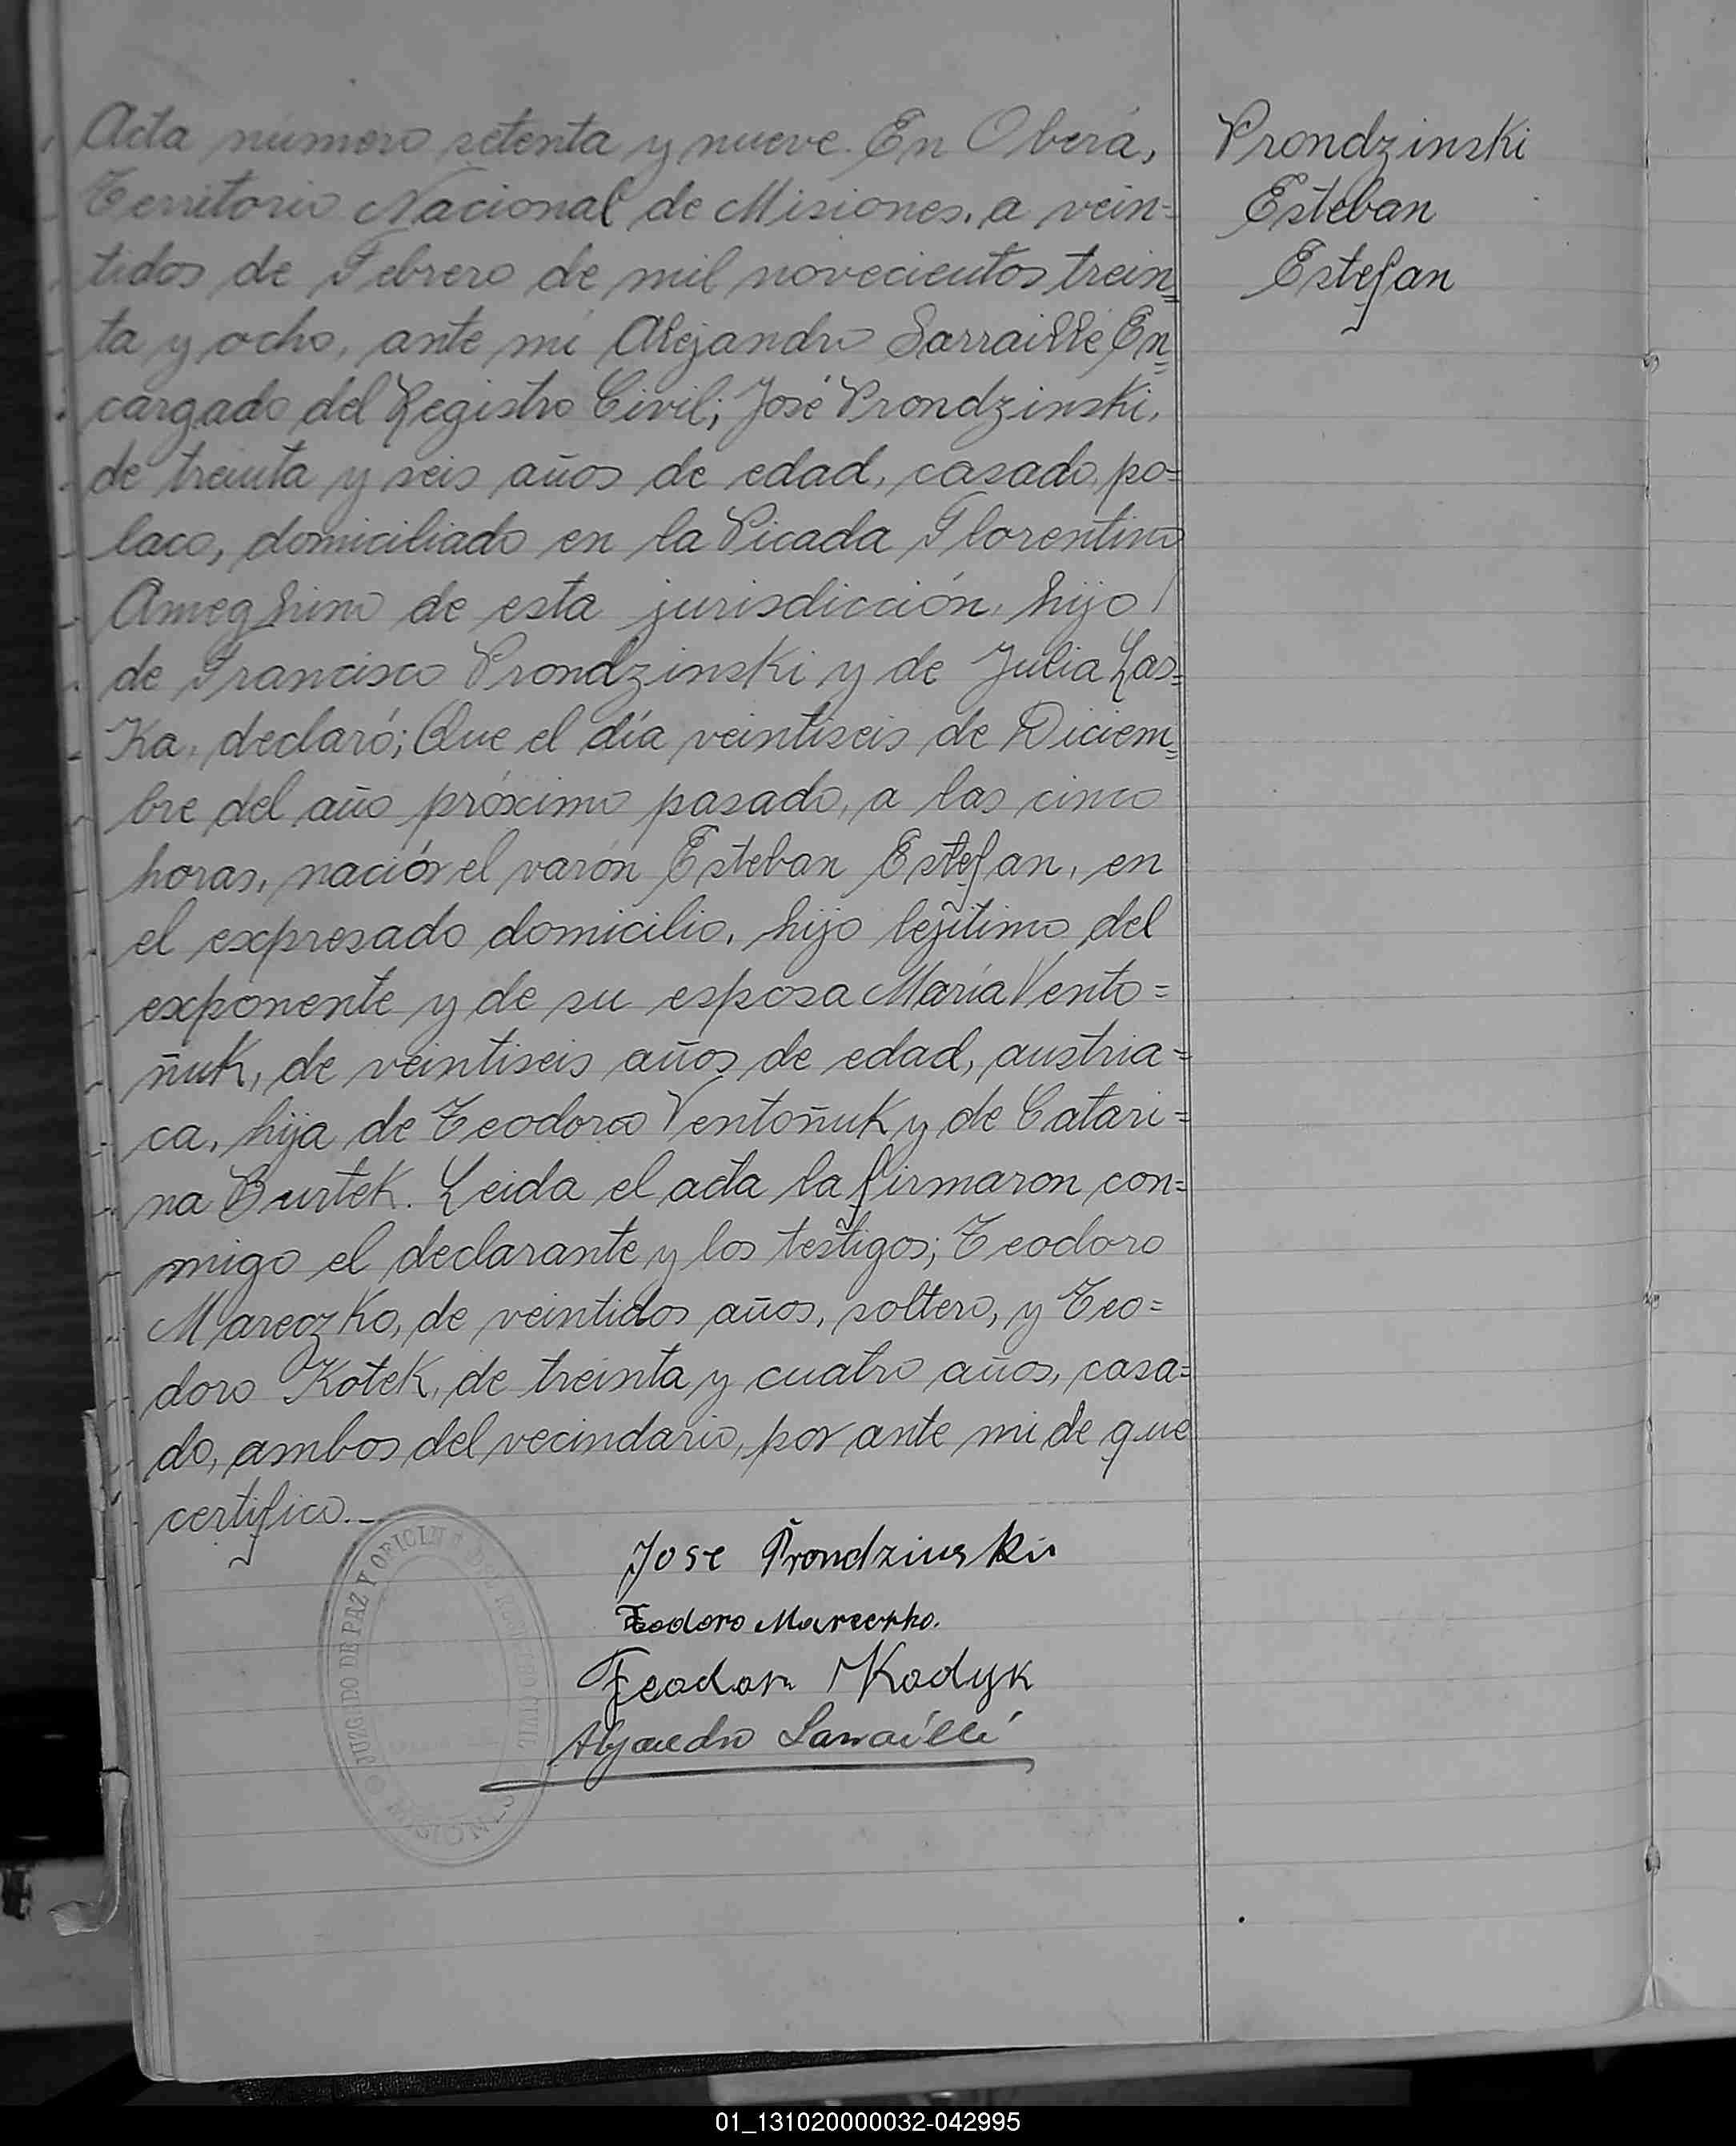 Acta número setenta y nueve. En Oberá,
Territorio Nacional de Misiones, a vein=
tidos de Febrero de mil novecientos trein=
ta y ocho, ante mí Alejandro Sarraillé En=
cargado del Registro Civil; José Prondzinski,
de treinta y seis años de edad, casado, po=
laco, domiciliado en la Picada Florentino
Ameghino de esta jurisdicción, hijo
de Francisco Prondzinski y de Julia Las=
Ka, declaró; Que el día veintiseis de Diciem=
bre del año próximo pasado, a las cinco
horas, nació el varón Esteban Estefan, en
el expresado domicilio, hijo lejítimo del
exponente y de su esposa María Vento=
ñuk, de veintiseis años de edad, austria=
ca, hija de Teodoro Ventoñuk y de Catari=
na Burtek. Leida el acta la firmaron con=
migo el declarante y los testigos; Teodoro
Mareczko, de veintidos años, soltero, y Teo=
doro Kotek, de treinta y cuatro años, casa=
do, ambos del vecindario, por ante mi de que
certifico.—
Prondzinski
Esteban
Estefan
Jose Prondzinski
Teodoro Mareczko.
Feodor Kodyk
Alejandro Sarraillé
JUZGADO DE PAZ Y OFICINA DEL REGISTRO CIVIL
MISIONES
01_131020000032-042995